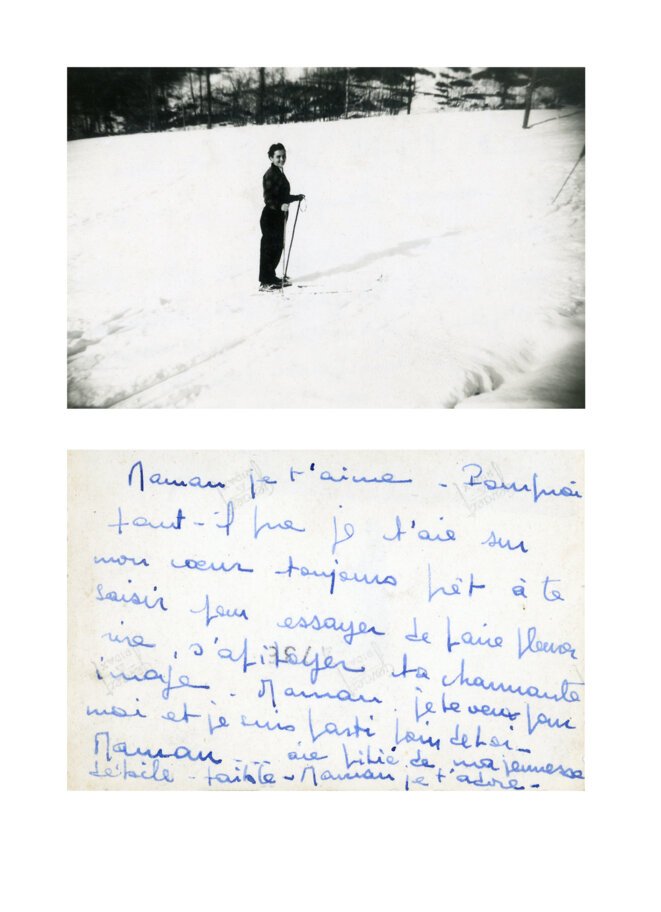 Maman je t'aime - Pourquoi
faut-il que je t'aie sur
mon cœur toujours prêt à te
saisir pour essayer de faire pleurer
rire, s'apitoyer ta charmante
image. Maman, je te veux pour
moi et je suis parti loin de toi -
Maman - - - aie pitié de ma jeunesse
débile - faible - Maman je t'adore -